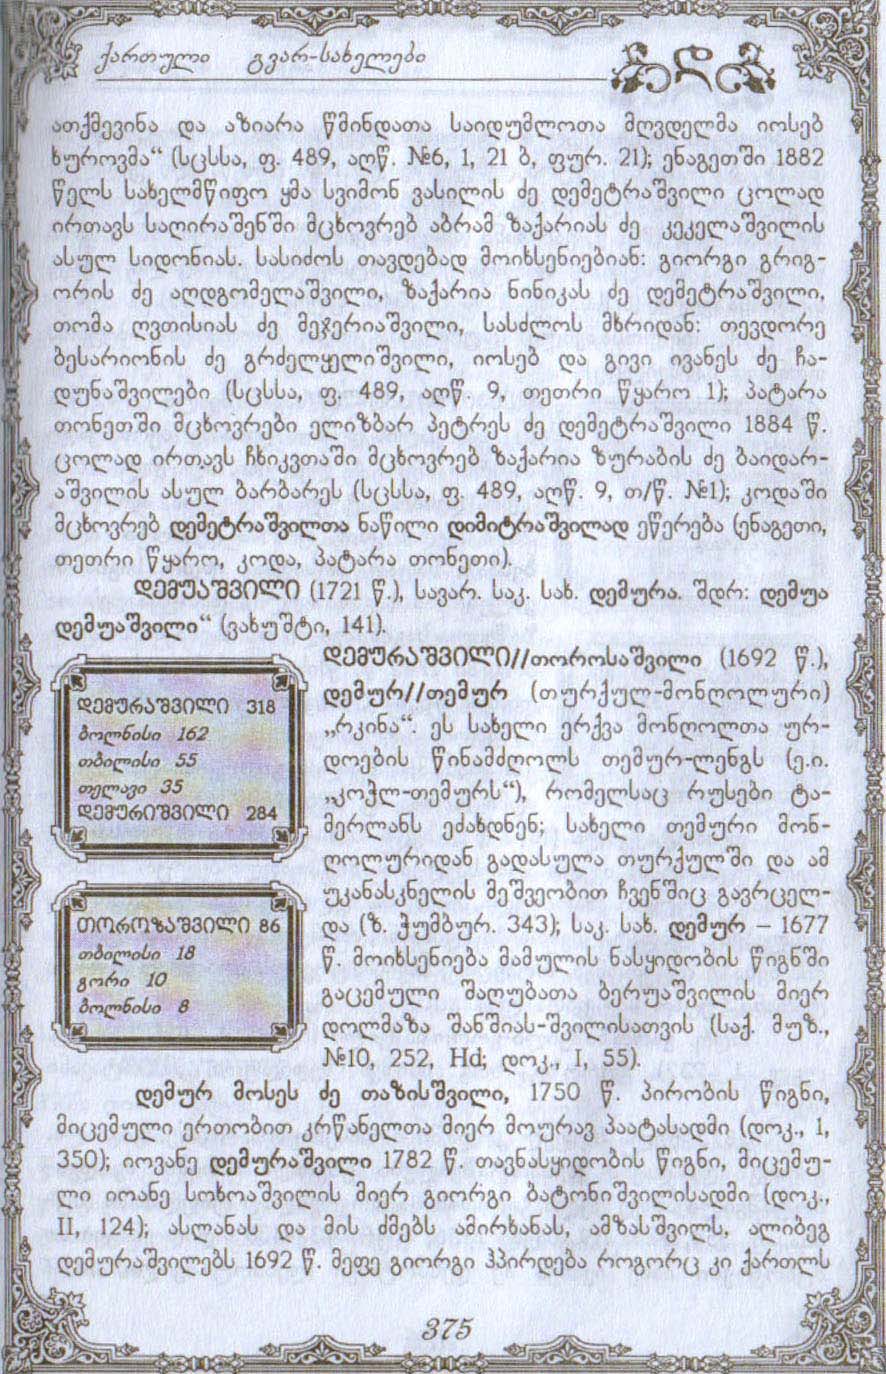 ქართული გვარ-სახელები
დ
ათქმევინა და აზიარა წმინდათა საიდუმლოთა მღვდელმა იოსებ
ხუროვმა“ (სცსსა, ფ. 489, აღწ. №6, 1, 21 ბ, ფურ. 21); ენაგეთში 1882
წელს სახელმწიფო ყმა სვიმონ ვასილის ძე დემეტრაშვილი ცოლად
ირთავს საღირაშენში მცხოვრებ აბრამ ზაქარიას ძე კეკელაშვილის
ასულ სიდონიას. სასიძოს თავდებად მოიხსენიებიან: გიორგი გრიგ-
ორის ძე აღდგომელაშვილი, ზაქარია ნინიკას ძე დემეტრაშვილი,
თომა ღვთისიას ძე მეჯერიაშვილი, სასძლოს მხრიდან: თევდორე
ბესარიონის ძე გრძელყელიშვილი, იოსებ და გივი ივანეს ძე ჩა-
დუნაშვილები (სცსსა, ფ. 489, აღწ. 9, თეთრი წყარო 1); პატარა
თონეთში მცხოვრები ელიზბარ პეტრეს ძე დემეტრაშვილი 1884 წ.
ცოლად ირთავს ჩხიკვთაში მცხოვრებ ზაქარია ზურაბის ძე ბაიდარ-
აშვილის ასულ ბარბარეს (სცსსა, ფ. 489, აღწ. 9, თ/წ. №1); კოდაში
მცხოვრებ დემეტრაშვილთა ნაწილი დიმიტრაშვილად ეწერება (ენაგეთი,
თეთრი წყარო, კოდა, პატარა თონეთი).
ᲓᲔᲛᲣᲐᲨᲕᲘᲚᲘ (1721 წ.), სავარ. საკ. სახ. დემურა. შდრ: დემუა
დემუაშვილი“ (ვახუშტი, 141).
ᲓᲔᲛᲣᲠᲐᲨᲕᲘᲚᲘ//თოროსაშვილი (1692 წ.),
დემურ//თემურ (თურქულ-მონღოლური)
„რკინა“. ეს სახელი ერქვა მონღოლთა ურ-
დოების წინამძღოლს თემურ-ლენგს (ე.ი.
„კოჭლ-თემურს“), რომელსაც რუსები ტა-
მერლანს ეძახდნენ; სახელი თემური მონ-
ღოლურიდან გადასულა თურქულში და ამ
უკანასკნელის მეშვეობით ჩვენშიც გავრცელ-
და (ზ. ჭუმბურ. 343); საკ. სახ. დემურ – 1677
წ. მოიხსენიება მამულის ნასყიდობის წიგნში
გაცემული შაღუბათა ბერუაშვილის მიერ
დოლმაზა შანშიას-შვილისათვის (საქ. მუზ.,
№10, 252, Hd; დოკ., I, 55).
ᲓᲔᲛᲣᲠᲐᲨᲕᲘᲚᲘ 318
ბოლნისი 162
თბილისი 55
თელავი 35
ᲓᲔᲛᲣᲠᲘᲨᲕᲘᲚᲘ 284
ᲗᲝᲠᲝᲖᲐᲨᲕᲘᲚᲘ 86
თბილისი 18
გორი 10
ბოლნისი 8
დემურ მოსეს ძე თაზისშვილი, 1750 წ. პირობის წიგნი,
მიცემული ერთობით კრწანელთა მიერ მოურავ პაატასადმი (დოკ., 1,
350); იოვანე დემურაშვილი 1782 წ. თავნასყიდობის წიგნი, მიცემუ-
ლი იოანე სოხოაშვილის მიერ გიორგი ბატონიშვილისადმი (დოკ.,
II, 124); ასლანას და მის ძმებს ამირხანას, ამზასშვილს, ალიბეგ
დემურაშვილებს 1692 წ. მეფე გიორგი ჰპირდება როგორც კი ქართლს
375